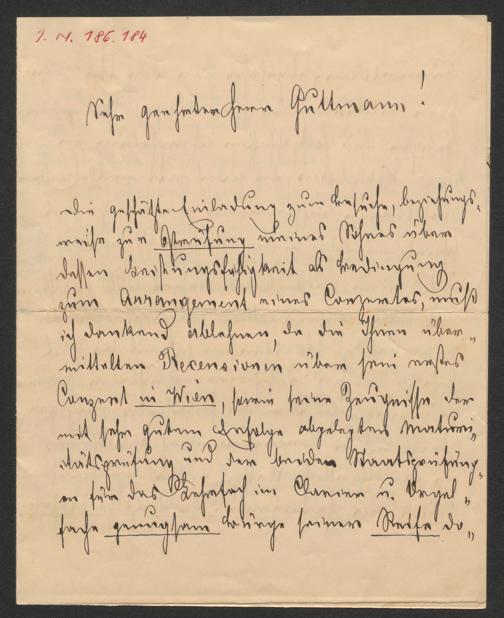 I. N. 186.184
Sehr geehrter Herr Guttmann!
Die geschätzte Einladung zum Besuche, beziehungs-
weise zur Prüfung meines Sohnes über
dessen Leistungsfähigkeit als Bedingung
zum Arrangement eines Conzertes, muß
ich dankend ablehnen, da die Ihnen über-
mittelten Recensionen über sein erstes
Conzert in Wien, sowie seine Zeugnisse der
mit sehr gutem Erfolge abgelegten Maturi-
tätsprüfung und der beiden Staatsprüfung-
en für das Lehrfach im Clavier u. Orgel-
fache genugsam Bürge seiner Reife do-